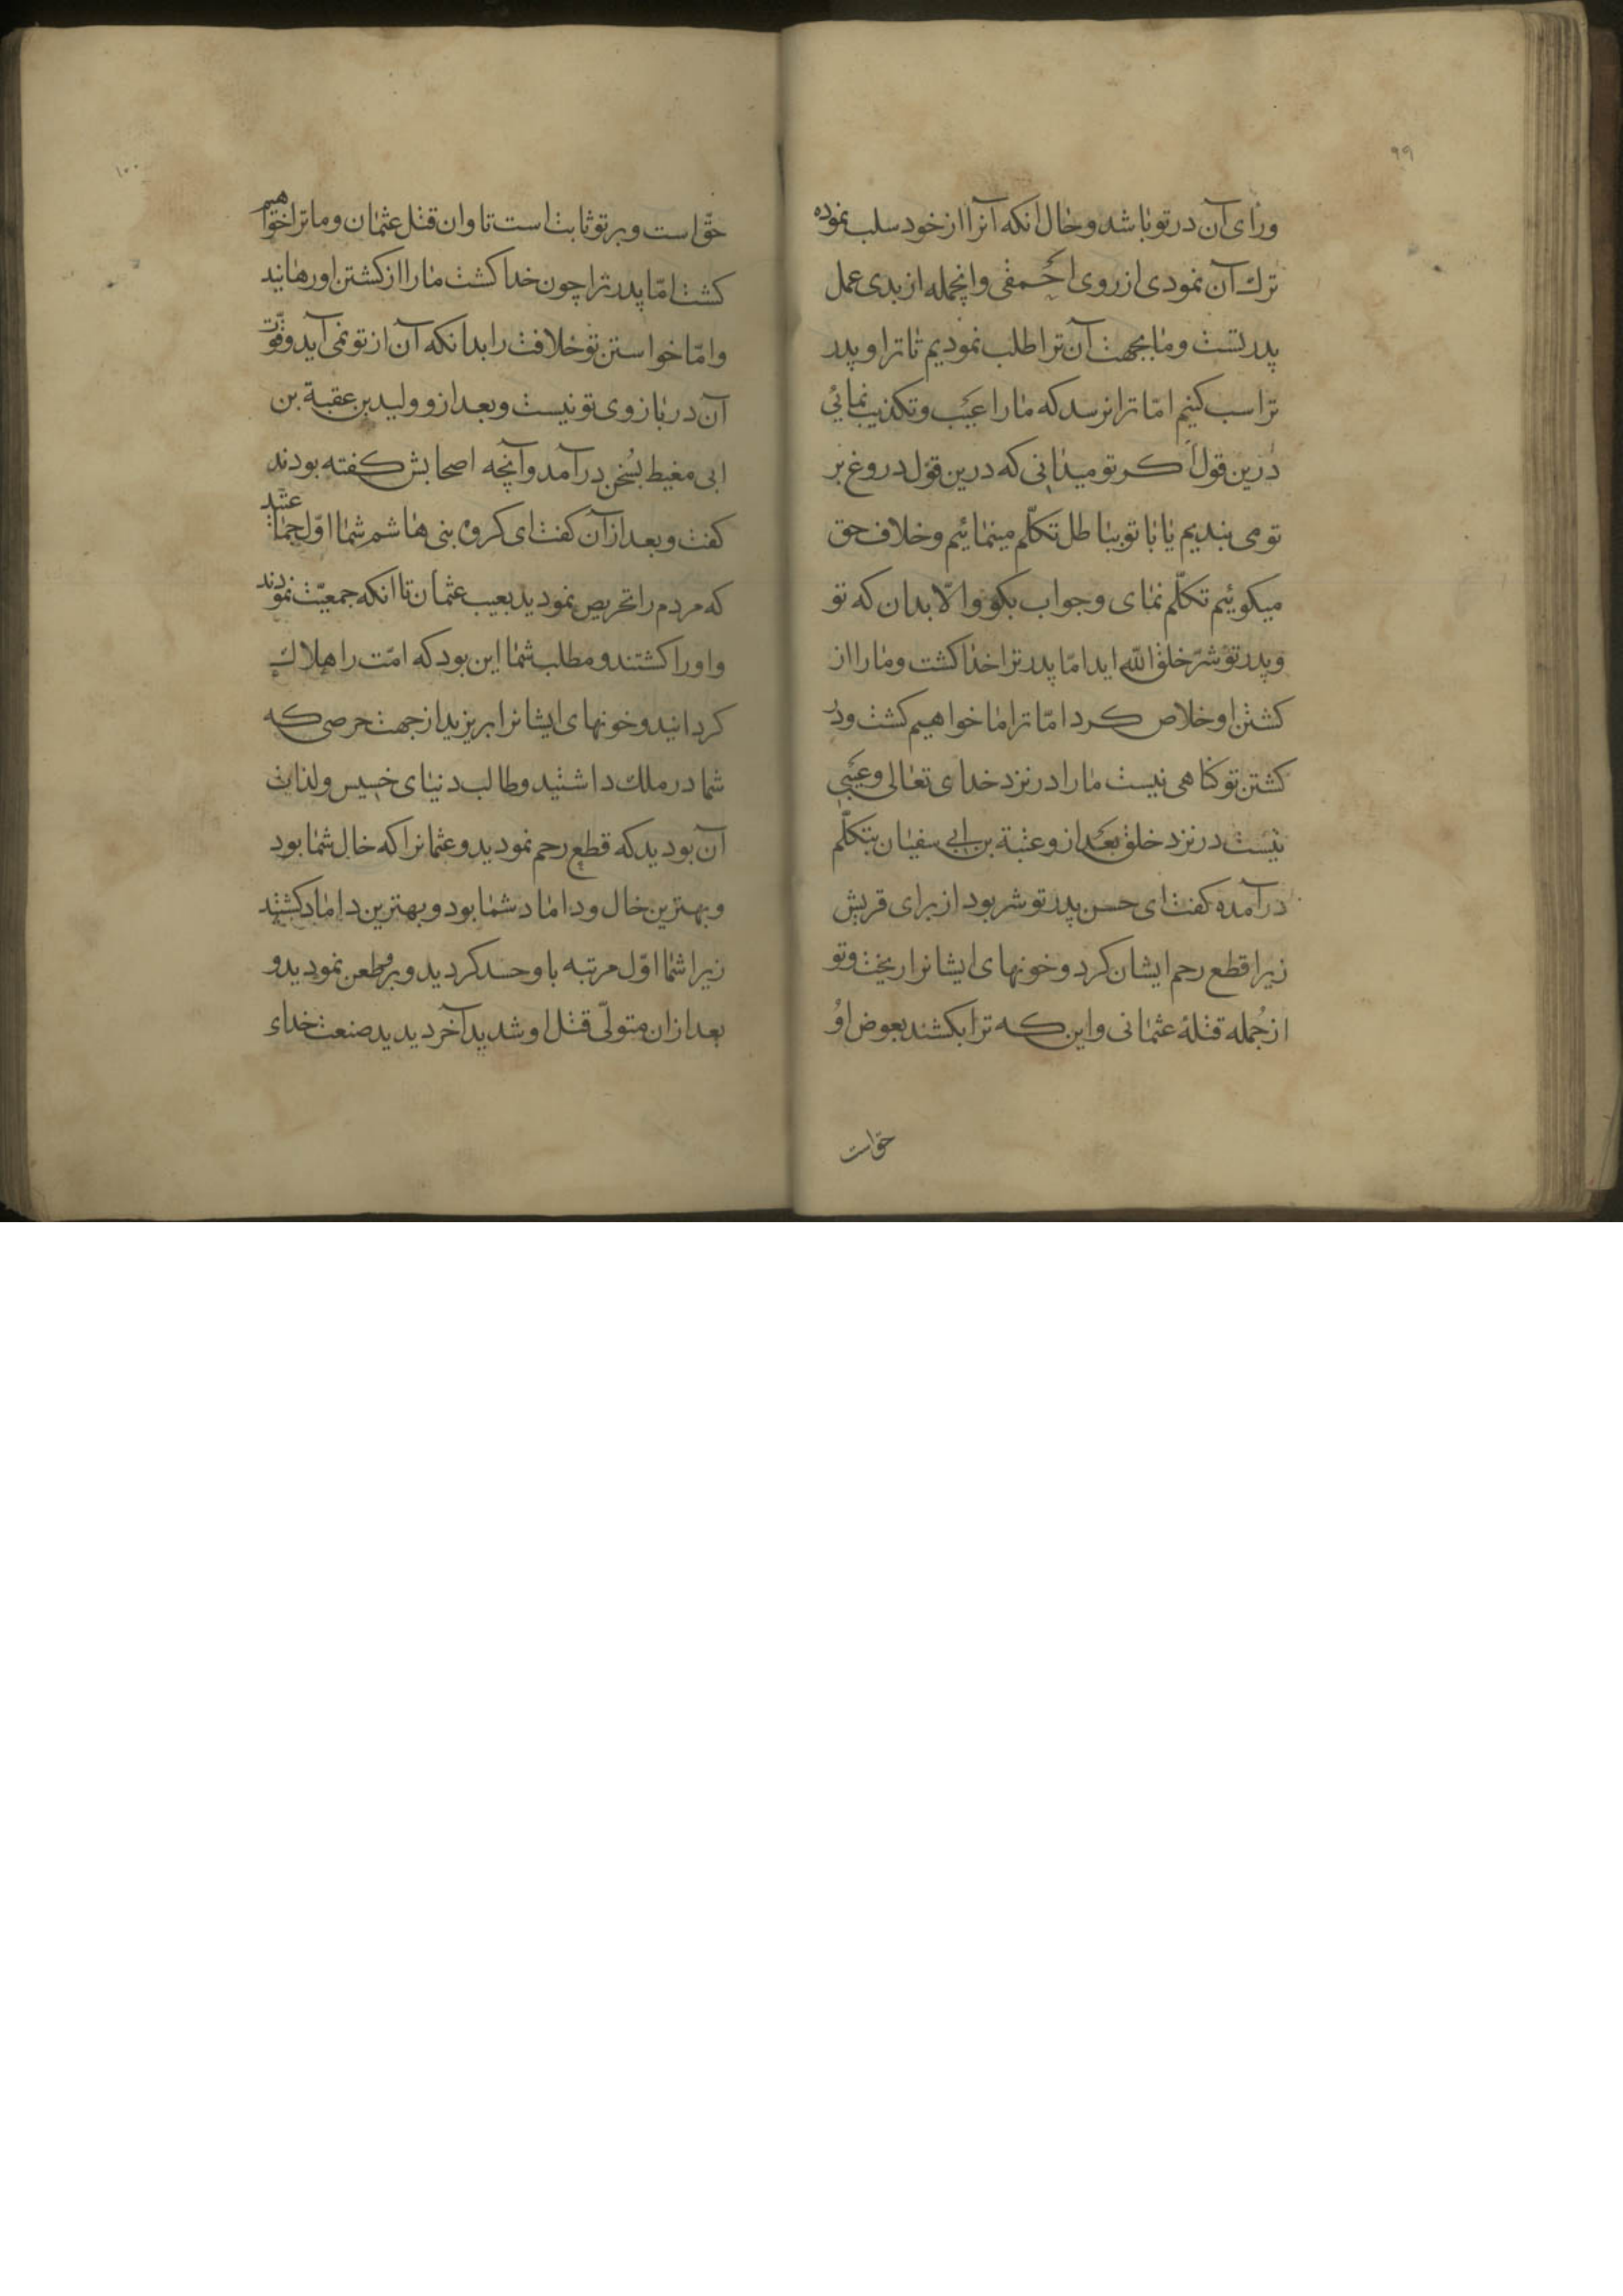 ۹۹
ورای آن در تو باشد و حال انکه آنرا از خود سلب نموده
ترك آن نمودی از روی احمقی وانجمله از بدی عمل
پدر تست وما بجهت آن ترا طلب نمودیم تا ترا و پدر
ترا سب کنیم امّا ترا نرسد که ما را عیب و تکذیب نمائی
درین قول کر تو میدانی که درین قول دروغ بر
تو می بندیم یا با تو بباطل تکلّم مینمائیم و خلاف حق
میکوئیم تکلّم نمای و جواب بکو والّا بدان که تو
وپدر تو شرّ خلق الله اید امّا پدر ترا خدا کشت وما را از
کشتن او خلاص کرد امّا ترا ما خواهیم کشت ودر
کشتن تو کناهی نیست ما را در نزد خدای تعالی وعیبی
نیست در نزد خلق بعد از و عتبة بن ابی سفیان بتکلّم
درآمده کفت ای حسن پدر تو شر بود از برای قریش
زیرا قطع رحم ایشان کرد و خونهای ایشانرا ریخت وتو
از جمله قتلهٔ عثمانی واین که ترا بکشند بعوض او
حق است
۱۰۰
حقّ است و بر تو ثابت است تاوان قتل عثمان و ما ترا خواهیم
کشت امّا پدر ترا چون خدا کشت ما را از کشتن او رهانید
وامّا خواستن تو خلافت را بدانکه آن از تو نمی آید وقوّت
آن در بازوی تو نیست و بعد از و ولید بن عقبة بن
ابی مغیط بسخن درآمد وآنچه اصحابش کفته بودند
کفت و بعد از آن کفت ای کروه بنی هاشم شما اوّل جماعتید
که مردم را تحریص نمودید بعیب عثمان تا انکه جمعیّت نمودند
واورا کشتند و مطلب شما این بود که امّت را هلاك
کردانید و خونهای ایشانرا بریزید از جهت حرصی که
شما در ملك داشتید و طالب دنیای خسیس ولذات
آن بودید که قطع رحم نمودید و عثمانرا که خال شما بود
و بهترین خال و داماد شما بود و بهترین داماد کشتید
زیرا شما اوّل مرتبه با و حسد کردید و بر و طعن نمودید و
بعد ازان متولّی قتل او شدید آخر دیدید صنعت خدای